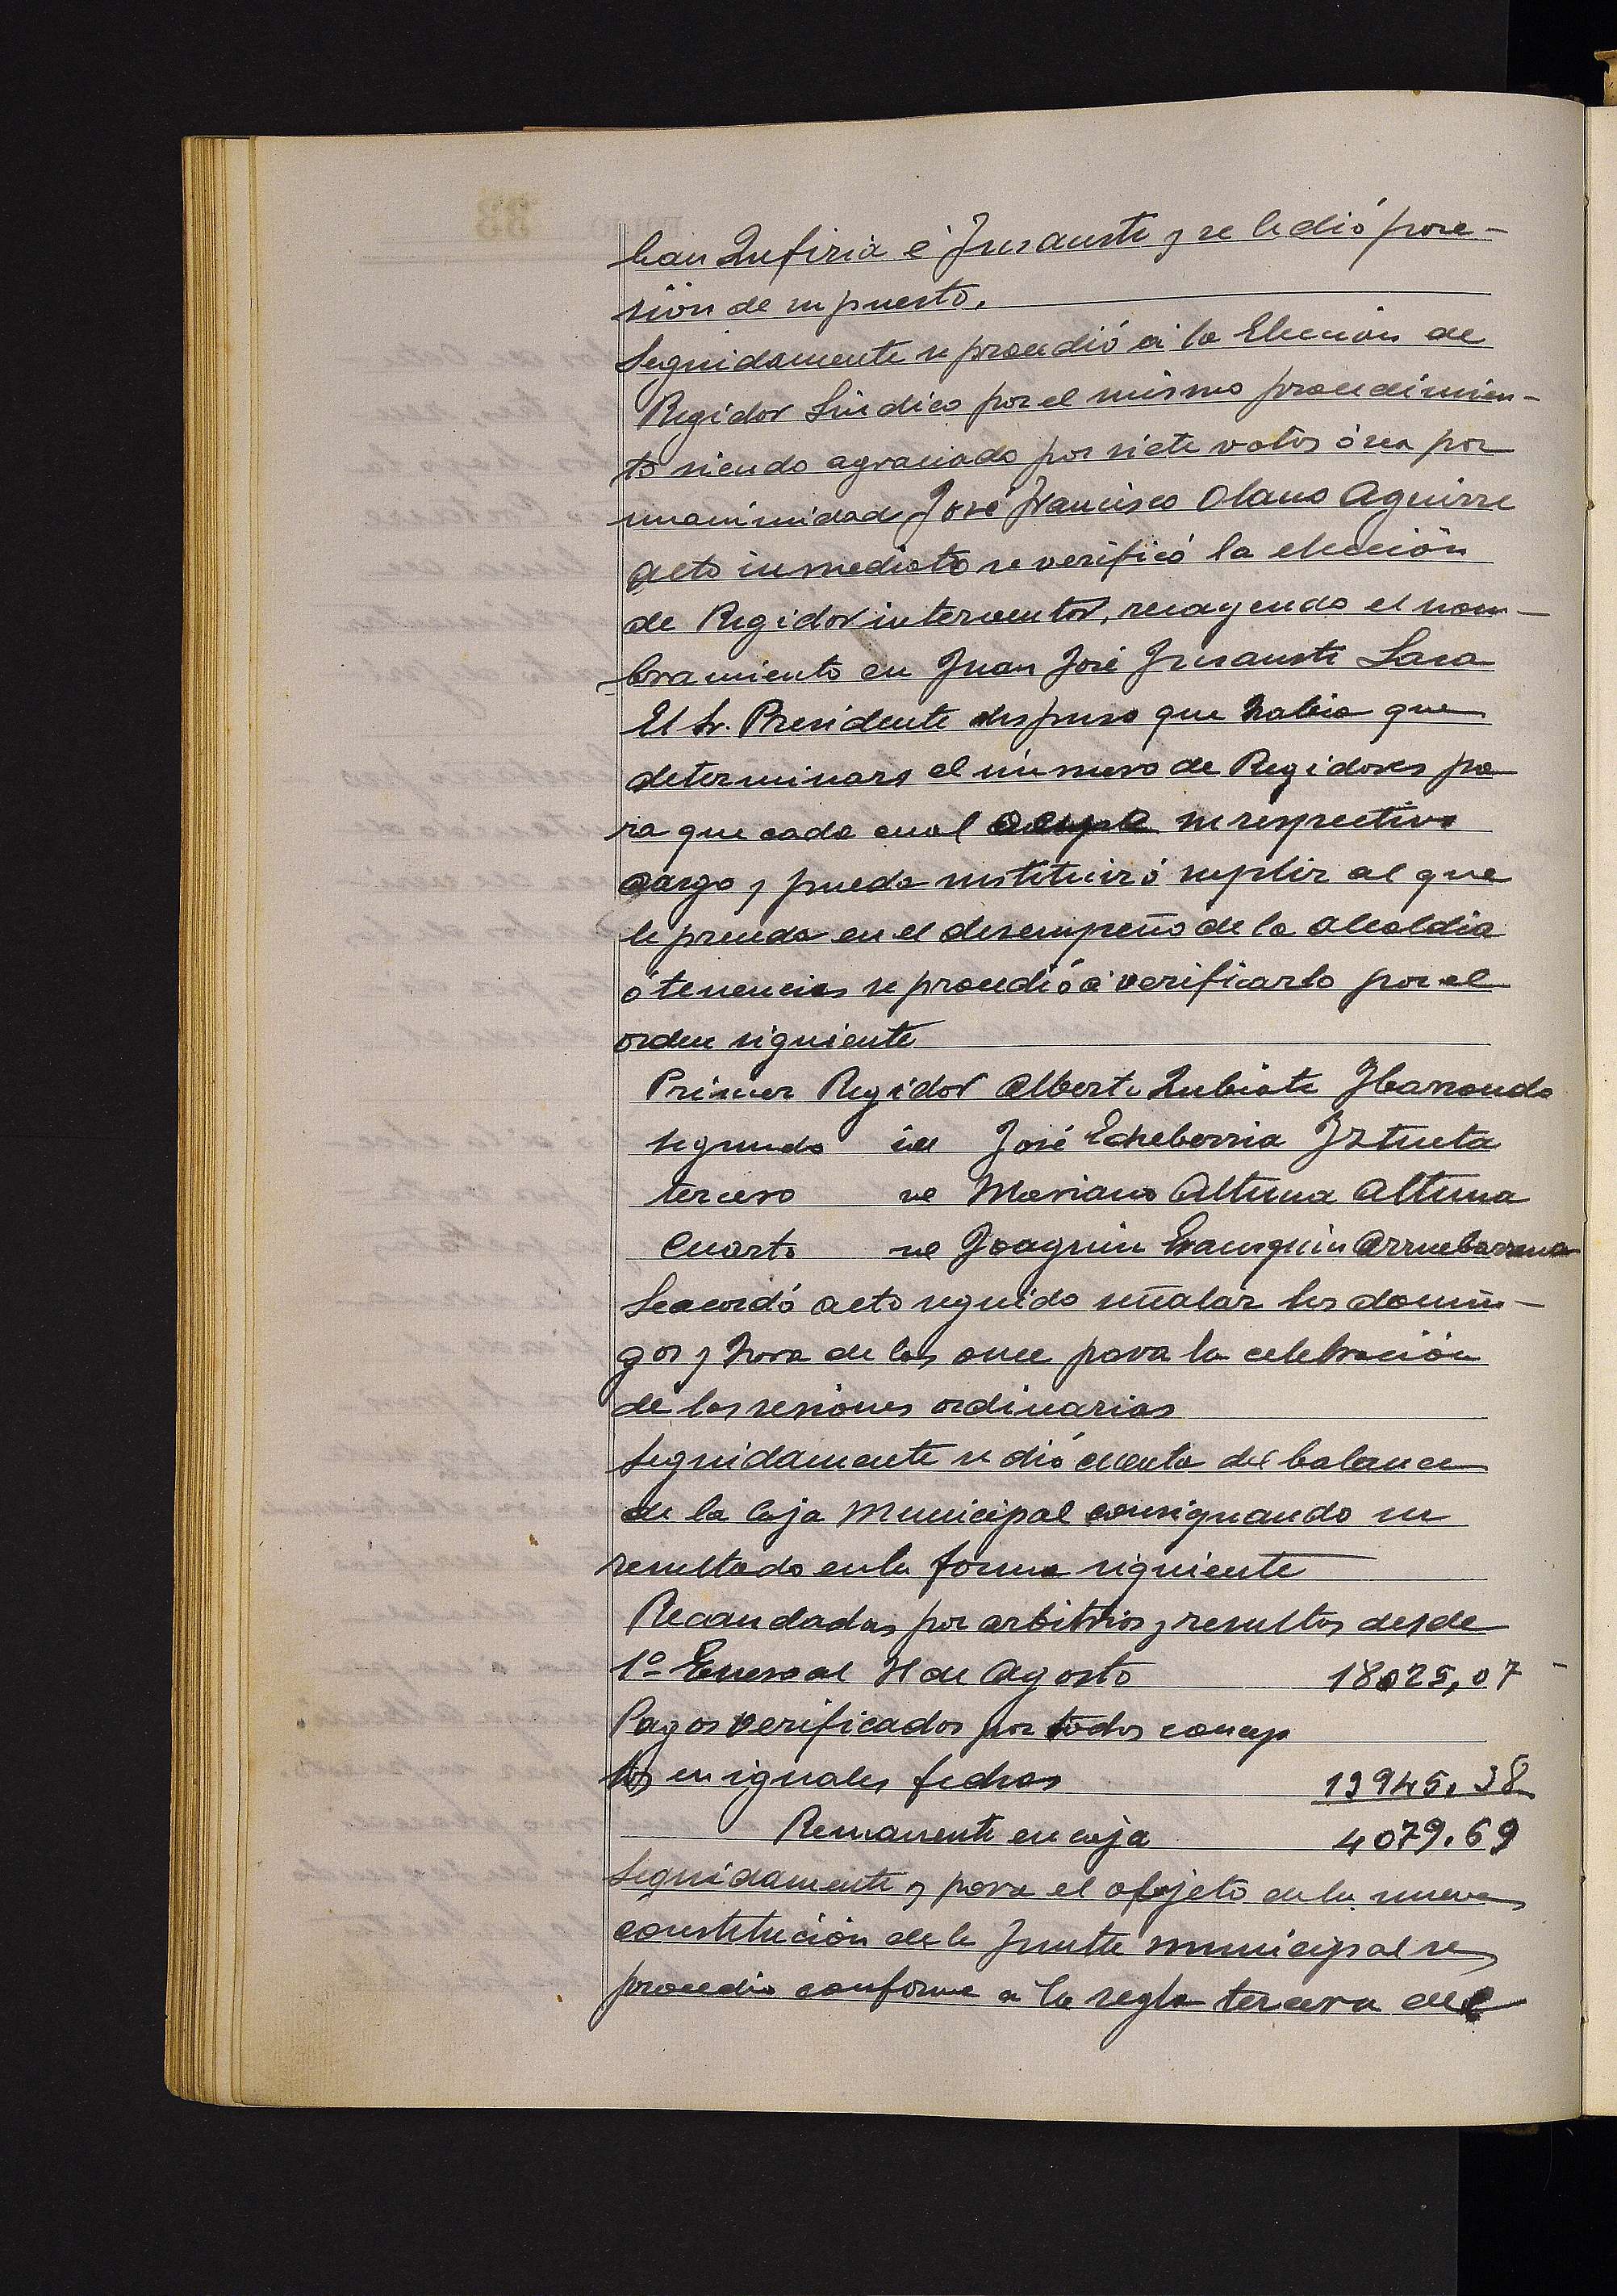 ban Zufiria é Jnsausti y se le dió pose-
sión de su puesto.
Seguidamente se procedió á la Elección de
Regidor Síndico por el mismo procedimien-
to siendo agraciado por siete votos ó sea por
unanimidad José Francisco Olano Aguirre
Acto inmediato se verificó la elección
de Regidor interventor, recayendo el nom-
bramiento en Juan José Jnsausti Lasa
El Sr. Presidente dispuso que habia que
determinarse el número de Regidores pa
ra que cada cual ocupe su respectivo
cargo y pueda sustituir ó suplir al que
le preceda en el desempeño de la alcaldia
ó tenencias se procedió á verificarlo por el
orden siguiente
Primer Regidor Alberto Zubiate Jbarrondo
segundo id José Echeberria Jztueta
tercero id Mariano Altuna Altuna
Cuarto id Joaquin Erauzquin Arruebarrena
Se acordó acto seguido señalar los domin-
gos y hora de las once para la celebración
de las sesiones ordinarias
Seguidamente se dió cuenta del balance
de la Caja Municipal consignando su
resultado en la forma siguiente
Recaudadas por arbitrios y resultas desde
1º Enero al 31 de Agosto 18025,07
Pagos verificados por todos concep
tos en iguales fechas 13945,38
Remanente en caja 4079.69
Seguidamente y para el objeto de la nueva
constitución de la Junta municipal se
procedio conforme a la regla tercera del